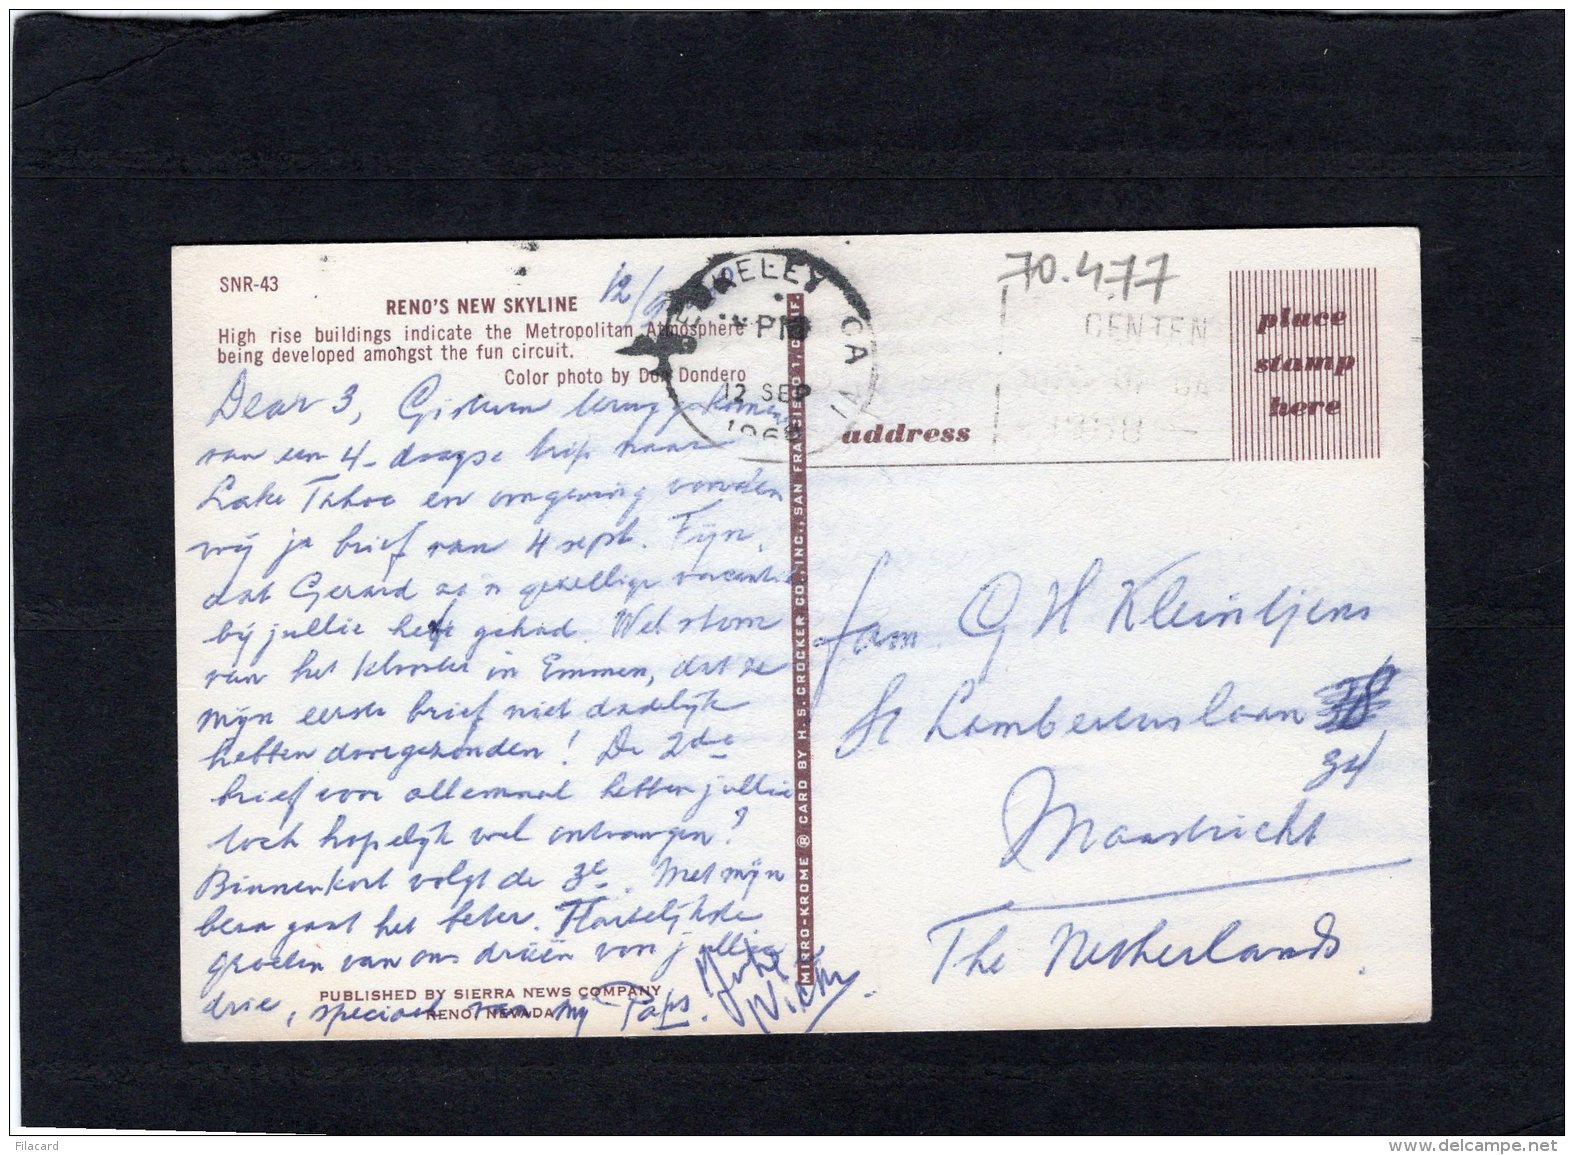 SNR-43
RENO'S NEW SKYLINE
High rise buildings indicate the Metropolitan Atmosphere
being developed amongst the fun circuit.
Color photo by Don Dondero
12/9
BERKELEY CA
PM
12 SEP
196
70.4.77
CENTEN
place
stamp
here
address
Dear 3, Gisteren terug gekomen
van een 4-daagse trip naar
Lake Tahoe en omgeving vonden
wij je brief van 4 sept. Fijn,
dat Gerard zo'n gezellige vacantie
bij jullie heeft gehad. Wel stom
van het klooster in Emmen, dat ze
mijn eerste brief niet dadelijk
hebben doorgezonden! De 2de
brief voor allemaal hebben jullie
toch hopelijk wel ontvangen?
Binnenkort volgt de 3e. Met mijn
been gaat het beter. Hartelijkste
groeten van ons drieën voor jullie
drie, speciaal van mij Paps.
PUBLISHED BY SIERRA NEWS COMPANY
RENO, NEVADA
MIRRO-KROME ® CARD BY H. S. CROCKER CO., INC., SAN FRANCISCO 1, CALIF.
fam G H Kleintjens
St Lambertuslaan
34
Maastricht
The Netherlands.
Filacard
www.delcampe.net